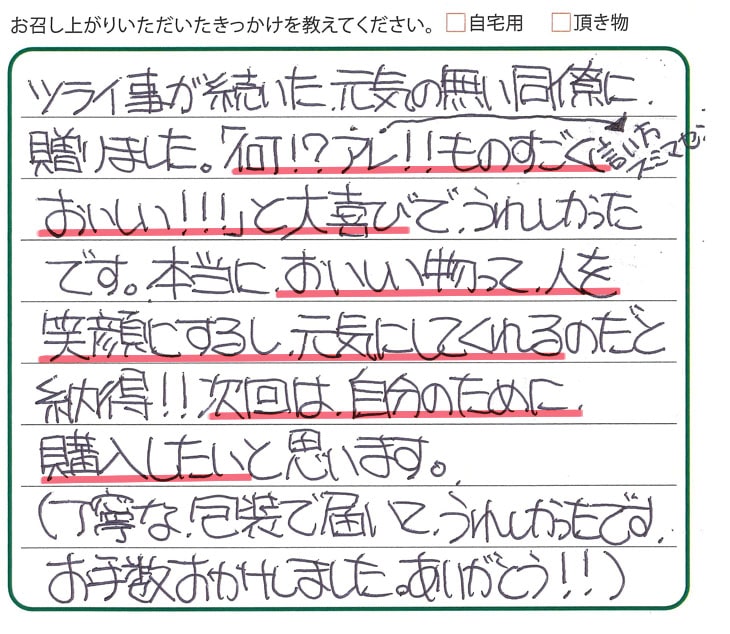 お召し上がりいただいたきっかけを教えてください。 □自宅用 □頂き物
ツライ事が続いた、元気の無い同僚に、
贈りました。「何!?アレ!!ものすごく
言い方スミマセン
おいしい!!!」と大喜びで、うれしかった
です。本当に、おいしい物って、人を
笑顔にするし、元気にしてくれるのだと
納得!!次回は、自分のために、
購入したいと思います。
(丁寧な、包装で届いて、うれしかったです。
お手数おかけしました。ありがとう!!)